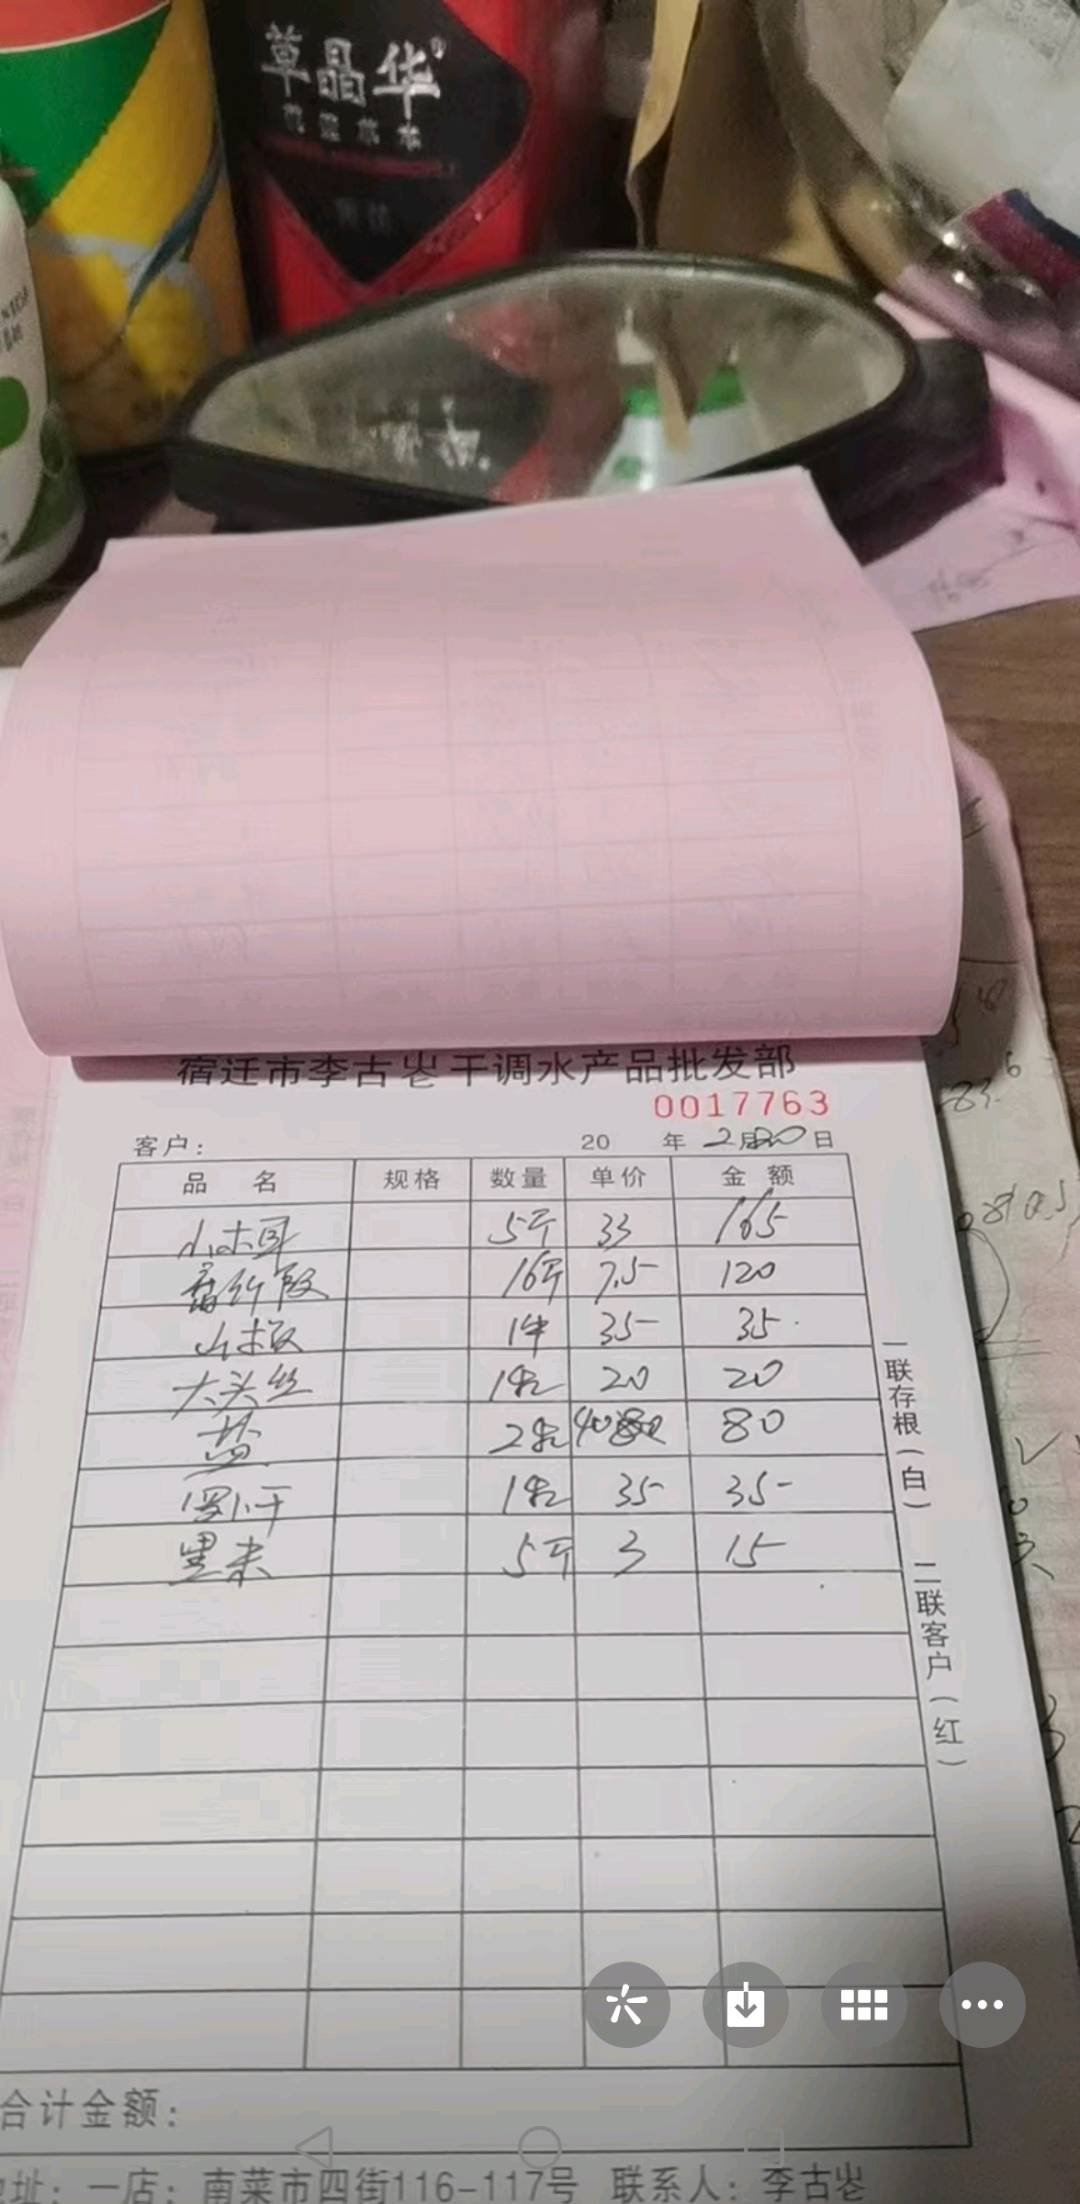 草晶华
宿迁市李古岜干调水产品批发部
0017763
客户: 20 年 2月20日
品名 规格 数量 单价 金额
小木耳 5斤 33 165
腐竹段 16斤 7.5 120
1件 35 35
大头丝 1包 20 20
盐 2包 40 80
萝卜干 1包 35 35
黑米 5斤 3 15
一联存根(白) 二联客户(红)
合计金额:
地址: 一店: 南菜市四街116-117号 联系人: 李古岜